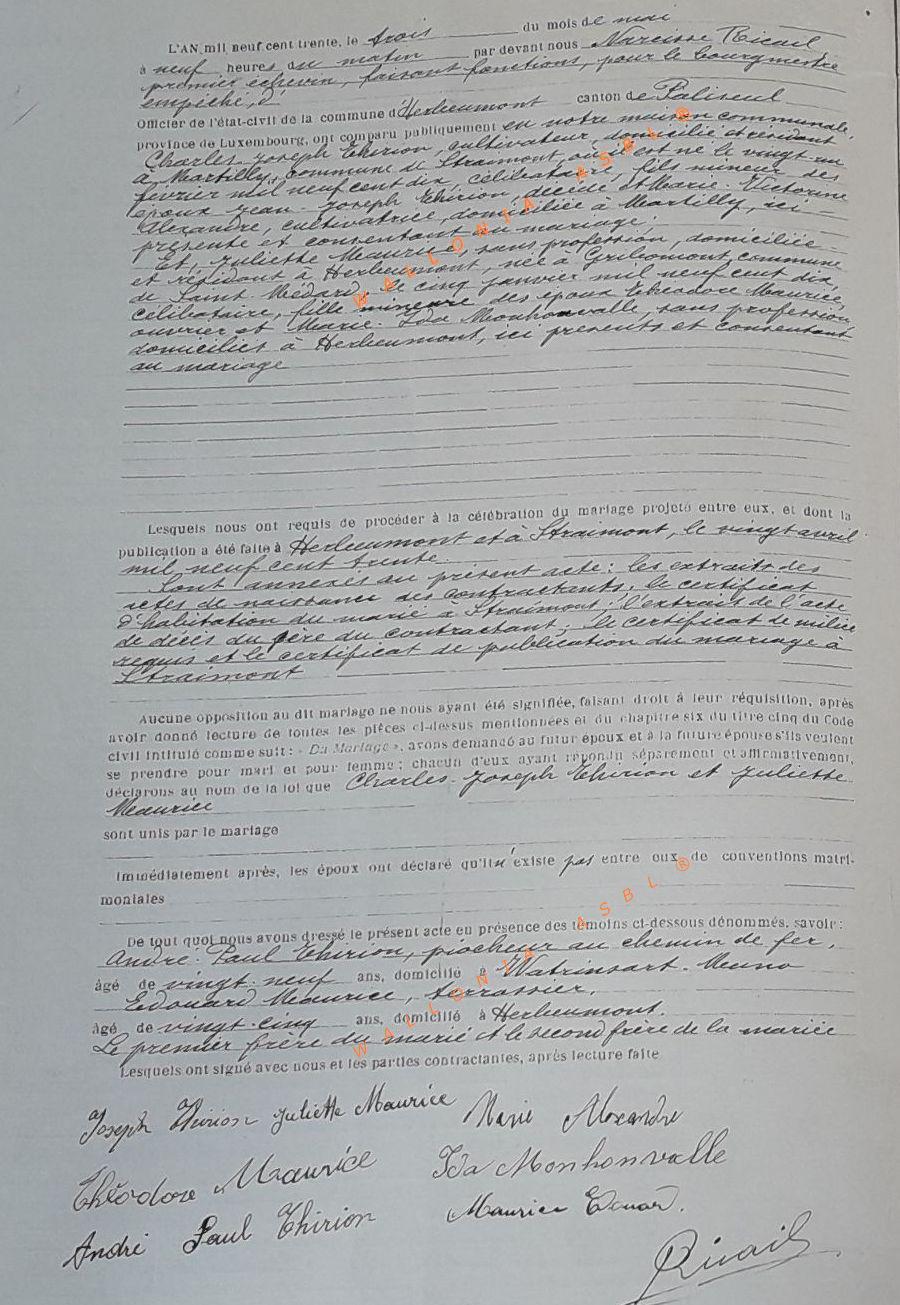 L'AN mil neuf cent trente, le trois du mois de mai
à neuf heures du matin par devant nous Narcisse Ricail
premier échevin, faisant fonctions, pour le bourgmestre
empêché, d'
Officier de l'état-civil de la commune d'Herbeumont canton de Paliseul
province de Luxembourg, ont comparu publiquement en notre maison communale
Charles-Joseph Thirion, cultivateur, domicilié et résidant
à Martilly, commune de Straimont, où il est né le vingt un
février mil neuf cent dix, célibataire, fils mineur des
époux Jean-Joseph Thirion décédé et Marie-Victorine
Alexandre, cultivatrice, domiciliée à Martilly, ici
présente et consentant au mariage;
Et, Juliette Maurice, sans profession, domiciliée
et résidant à Herbeumont, née à Gribomont, commune
de Saint-Médard, le cinq janvier mil neuf cent dix,
célibataire, fille mineure des époux Théodore Maurice,
ouvrier et Marie-Ida Monhonvalle, sans profession,
domiciliés à Herbeumont, ici présents et consentant
au mariage
Lesquels nous ont requis de procéder à la célébration du mariage projeté entre eux, et dont la
publication a été faite à Herbeumont et à Straimont, le vingt avril
mil neuf cent trente
Sont annexés au présent acte: les extraits des
actes de naissance des contractants; le certificat
d'habitation du marié à Straimont; l'extrait de l'acte
de décès du père du contractant; le certificat de milice
requis et le certificat de publication du mariage à
Straimont
Aucune opposition au dit mariage ne nous ayant été signifiée, faisant droit à leur réquisition, après
avoir donné lecture de toutes les pièces ci-dessus mentionnées et du chapitre six du titre cinq du Code
civil intitulé comme suit: « Du Mariage », avons demandé au futur époux et à la future épouse s'ils veulent
se prendre pour mari et pour femme; chacun d'eux ayant répondu séparément et affirmativement,
déclarons au nom de la loi que Charles-Joseph Thirion et Juliette
Maurice
sont unis par le mariage
Immédiatement après, les époux ont déclaré qu'il n'existe pas entre eux de conventions matri-
moniales
De tout quoi nous avons dressé le présent acte en présence des témoins ci-dessous dénommés, savoir:
André-Paul Thirion, piocheur au chemin de fer,
âgé de vingt-neuf ans, domicilié à Watrinsart-Muno
Edouard Maurice, terrassier,
âgé de vingt-cinq ans, domicilié à Herbeumont.
Le premier frère du marié et le second frère de la mariée
Lesquels ont signé avec nous et les parties contractantes, après lecture faite
Joseph Thirion Juliette Maurice Marie Alexandre
Théodore Maurice Ida Monhonvalle
André Paul Thirion Maurice Edouard.
Ricail
WALLONIA ASBL ®
WALLONIA ASBL ®